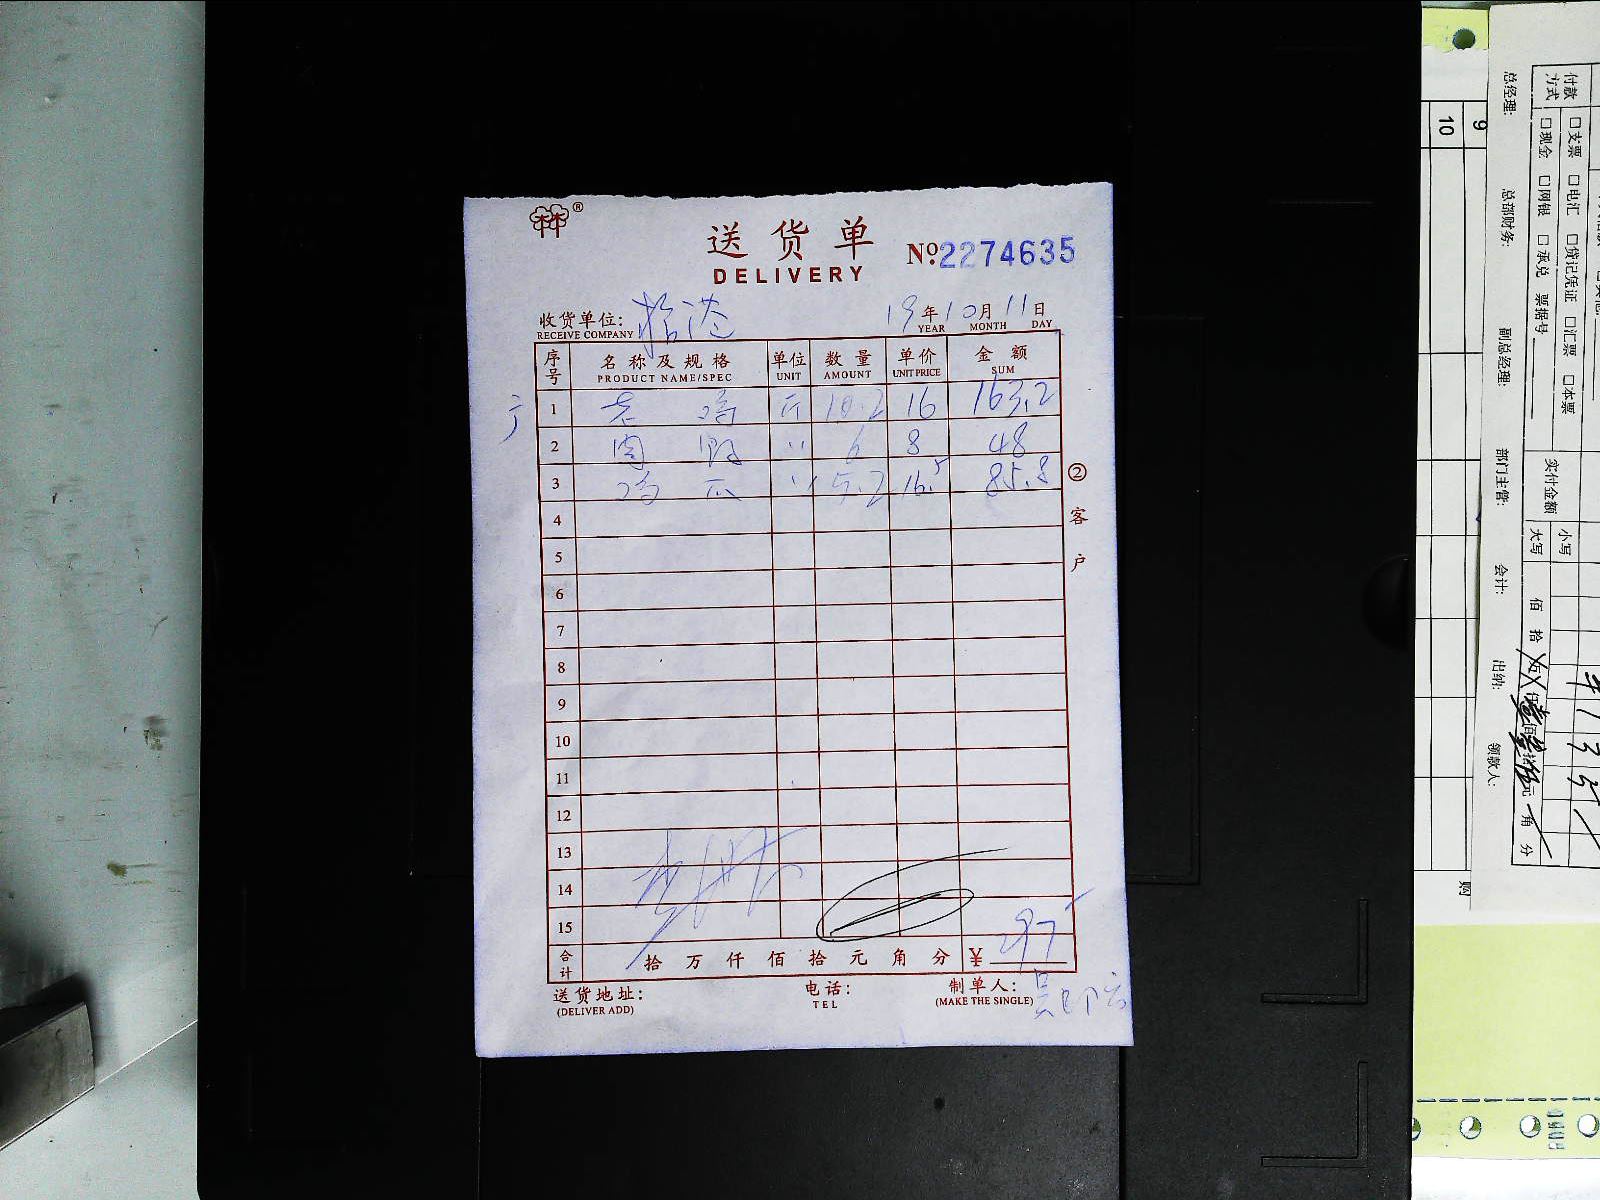 林 ®
送货单
DELIVERY
№2274635
收货单位:
RECEIVE COMPANY
19年10月11日
YEAR MONTH DAY
序号 名称及规格 单位 数量 单价 金额
PRODUCT NAME/SPEC UNIT AMOUNT UNIT PRICE SUM
1 老 鸡 斤 10.2 16 163.2
2 肉 〃 6 8 48
3 鸡 爪 〃 5.2 16.5 85.8
4
5
6
7
8
9
10
11
12
13
14
15
合计 拾 万 仟 佰 拾 元 角 分 ¥297
② 客户
送货地址: 电话: 制单人:
(DELIVER ADD) TEL (MAKE THE SINGLE)
9
10
购
付款方式 □支票 □电汇 □贷记凭证 □汇票 □本票
□现金 □网银 □承兑 票据号
实付金额 小写
大写 佰 拾 万 仟 佰 拾 元 角 分
总经理: 总部财务: 副总经理: 部门主管: 会计: 出纳: 领款人: